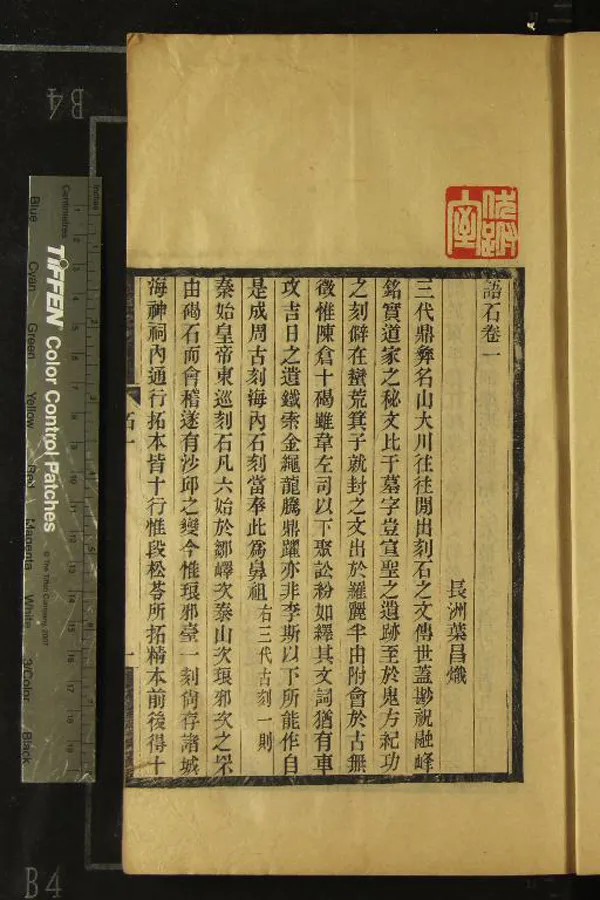 語石卷一
長洲葉昌熾
三代鼎彝名山大川往往閒出刻石之文傳世蓋尠祝融峰
銘實道家之秘文比干墓字豈宣聖之遺跡至於鬼方紀功
之刻僻在蠻荒箕子就封之文出於羅麗半由附會於古無
徵惟陳倉十碣雖韋左司以下聚訟紛如繹其文詞猶有車
攻吉日之遺鐵索金繩龍騰鼎躍亦非李斯以下所能作自
是成周古刻海內石刻當奉此為鼻祖右三代古刻一則
秦始皇帝東巡刻石凡六始於鄒嶧次泰山次琅邪次之罘
由碣石而會稽遂有沙邱之變今惟琅邪臺一刻尚存諸城
海神祠內通行拓本皆十行惟段松苓所拓精本前後得十
石一
一
B4
B4
TIFFEN Color Control Patches
© The Tiffen Company, 2007
Centimetres
Inches
Blue
Cyan
Green
Yellow
Red
Magenta
White
3/Color
Black